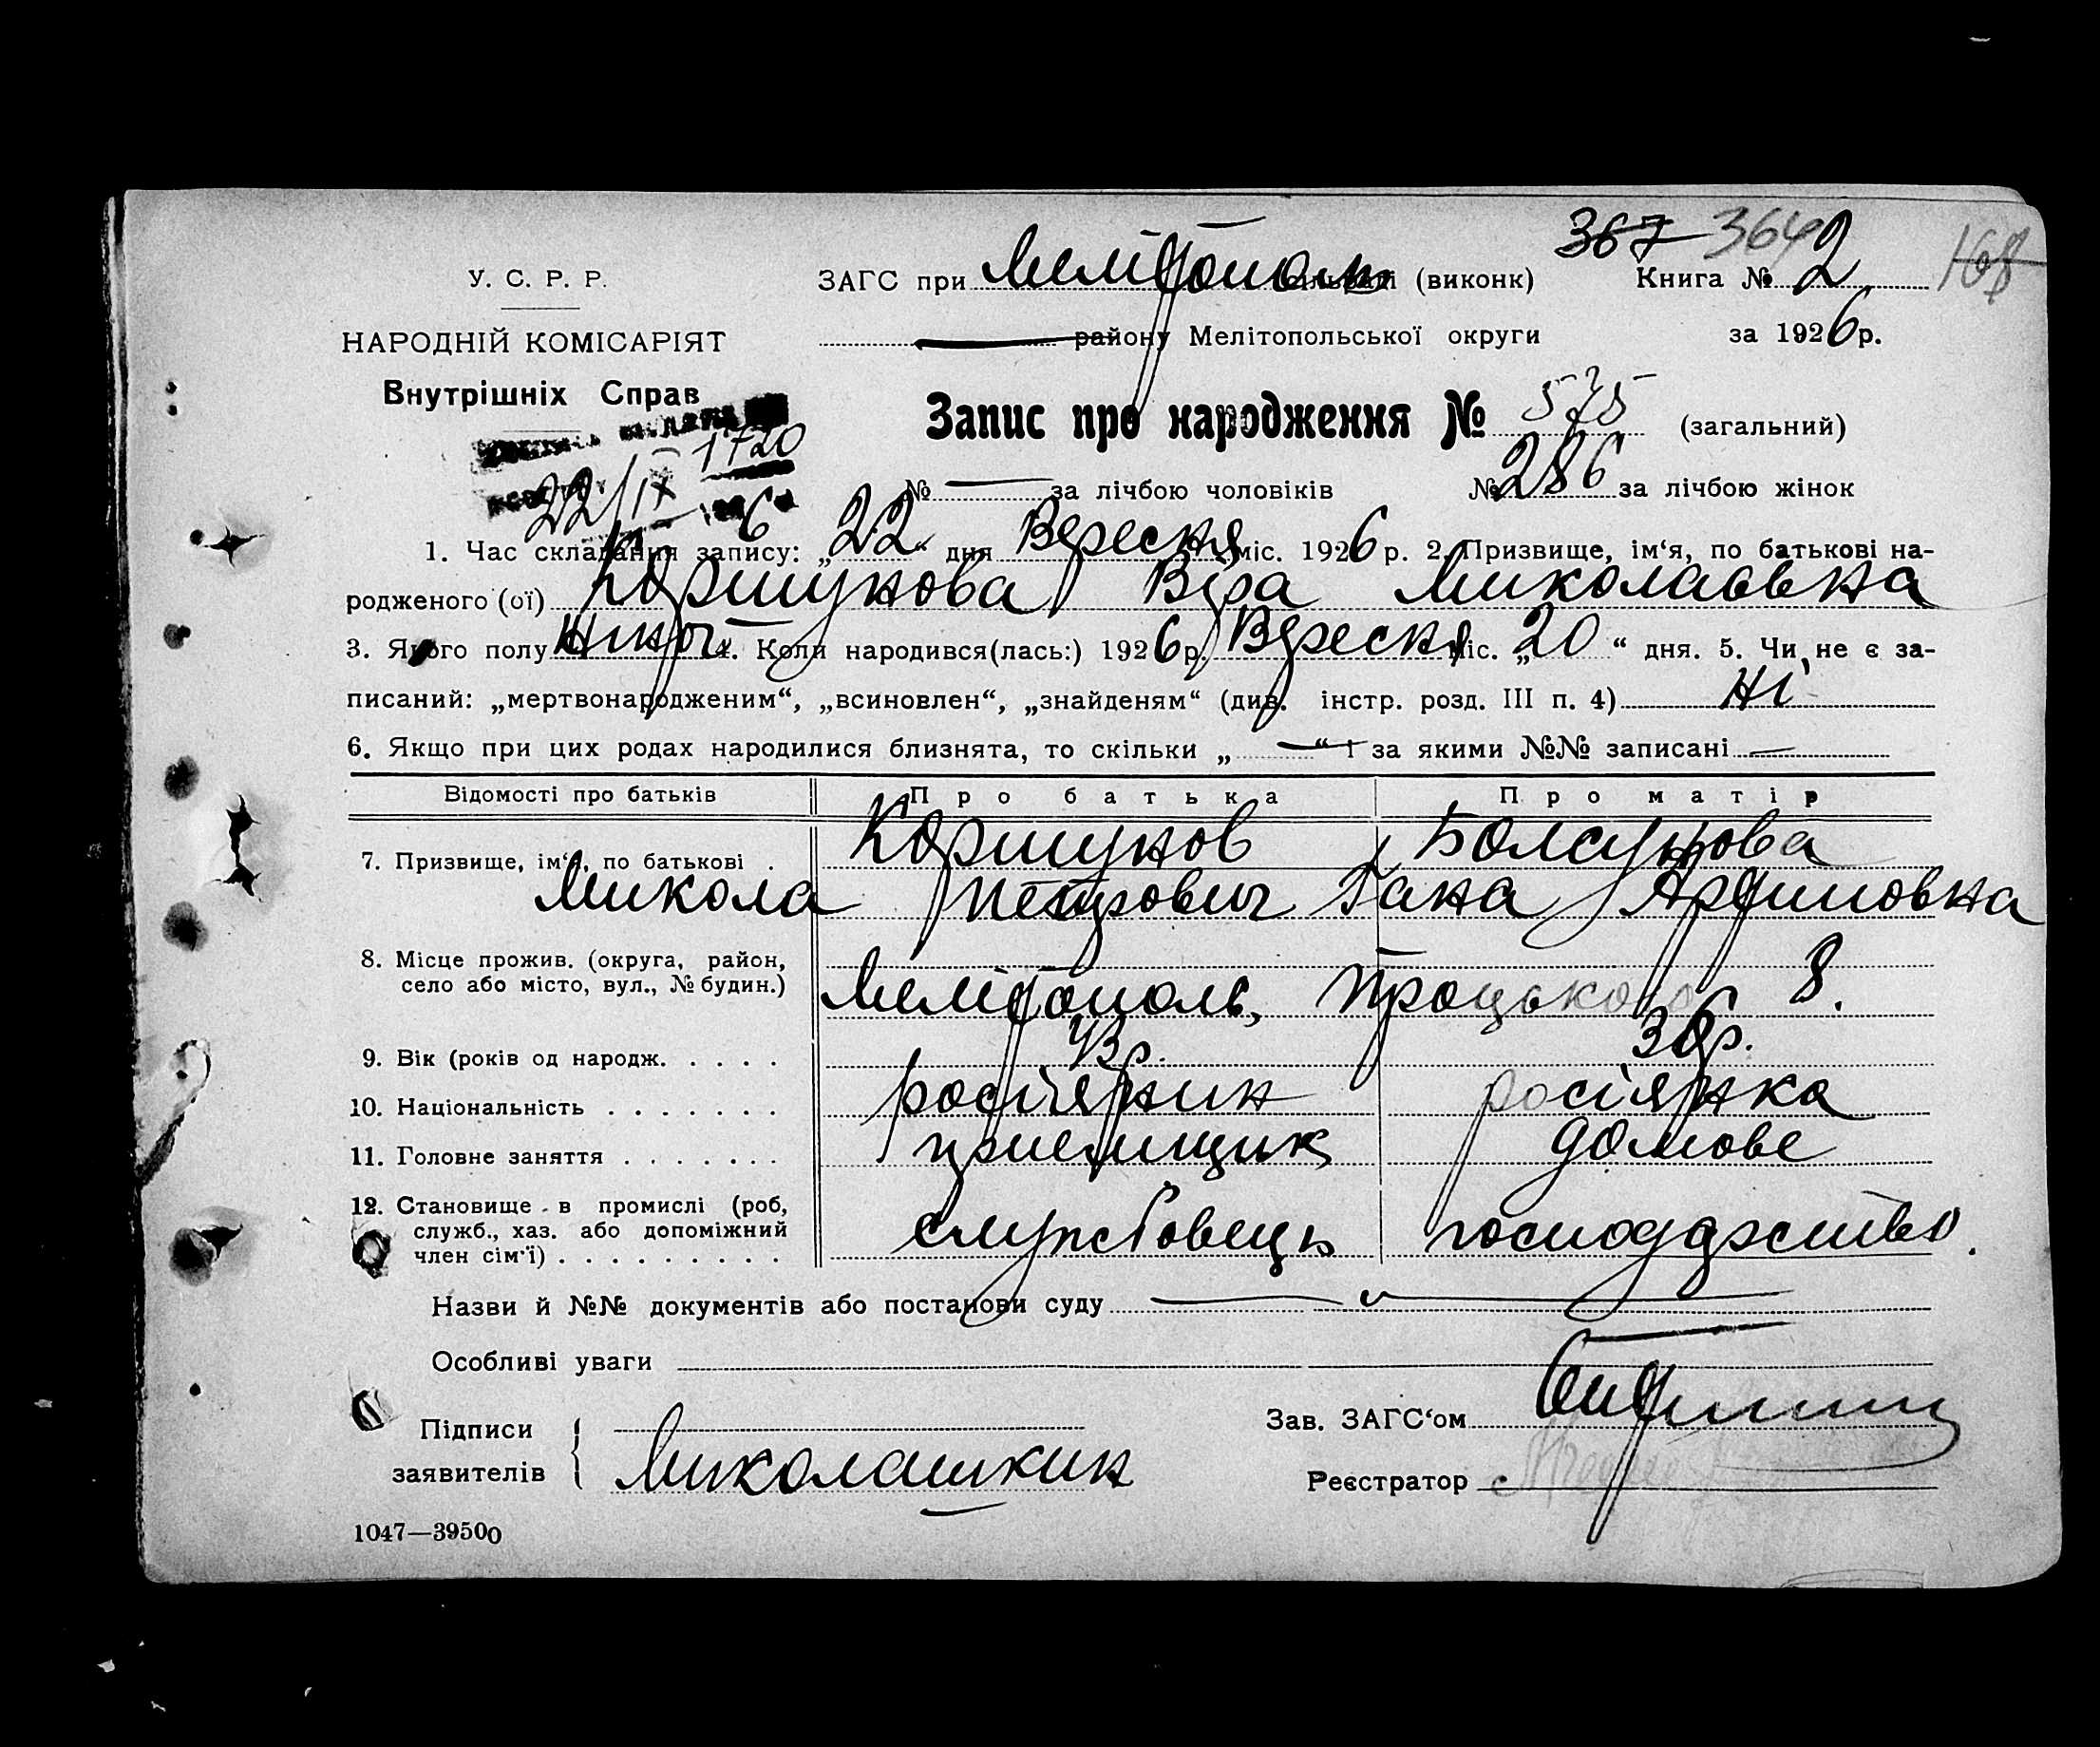 367 364 168
У. С. Р. Р. ЗАГС при Мелітополь сільраді (виконк) Книга № 2
НАРОДНІЙ КОМІСАРІЯТ району Мелітопольської округи за 1926 р.
Внутрішніх Справ
Запис про народження № 575 (загальний)
1720
22/IX 6
№ — за лічбою чоловіків № 286 за лічбою жінок
1. Час складання запису: „22“ дня Вересня міс. 1926 р. 2. Призвище, ім‘я, по батькові на-
родженого (ої) Коршунова Віра Миколаєвна
3. Якого полу жіноч. 4. Коли народився(лась:) 1926 р. Вересня міс. „20“ дня. 5. Чи не є за-
писаний: „мертвонародженим“, „всиновлен“, „знайденям“ (див. інстр. розд. III п. 4) ні
6. Якщо при цих родах народилися близнята, то скільки „—“ і за якими №№ записані —
Відомості про батьків Про батька Про матір
7. Призвище, ім‘я, по батькові . Коршунов Болсунова
Микола Петрович Гана Артимовна
8. Місце прожив. (округа, район,
село або місто, вул., № будин.) Мелітополь, Троцького 8.
9. Вік (років од народж. . . . . 43 р. 36 р.
10. Національність . . . . . . . росіянин росіянка
11. Головне заняття . . . . . . . приемщик домове
12. Становище в промислі (роб,
служб., хаз. або допоміжний службовець господарство.
член сім‘ї) . . . . . . . . .
Назви й №№ документів або постанови суду —
Особливі уваги
Підписи Зав. ЗАГС‘ом
заявителів Миколашкин Реєстратор
1047—39500